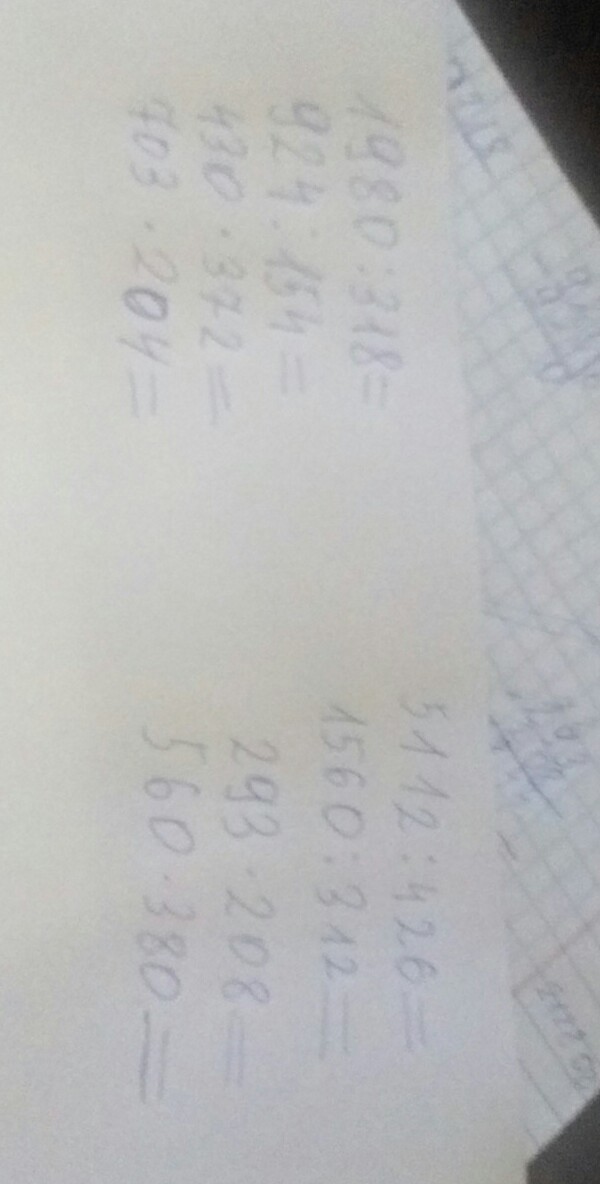 1980:318=
924:154=
430·372=
703·204=
5112:426=
1560:312=
293·208=
560·380=